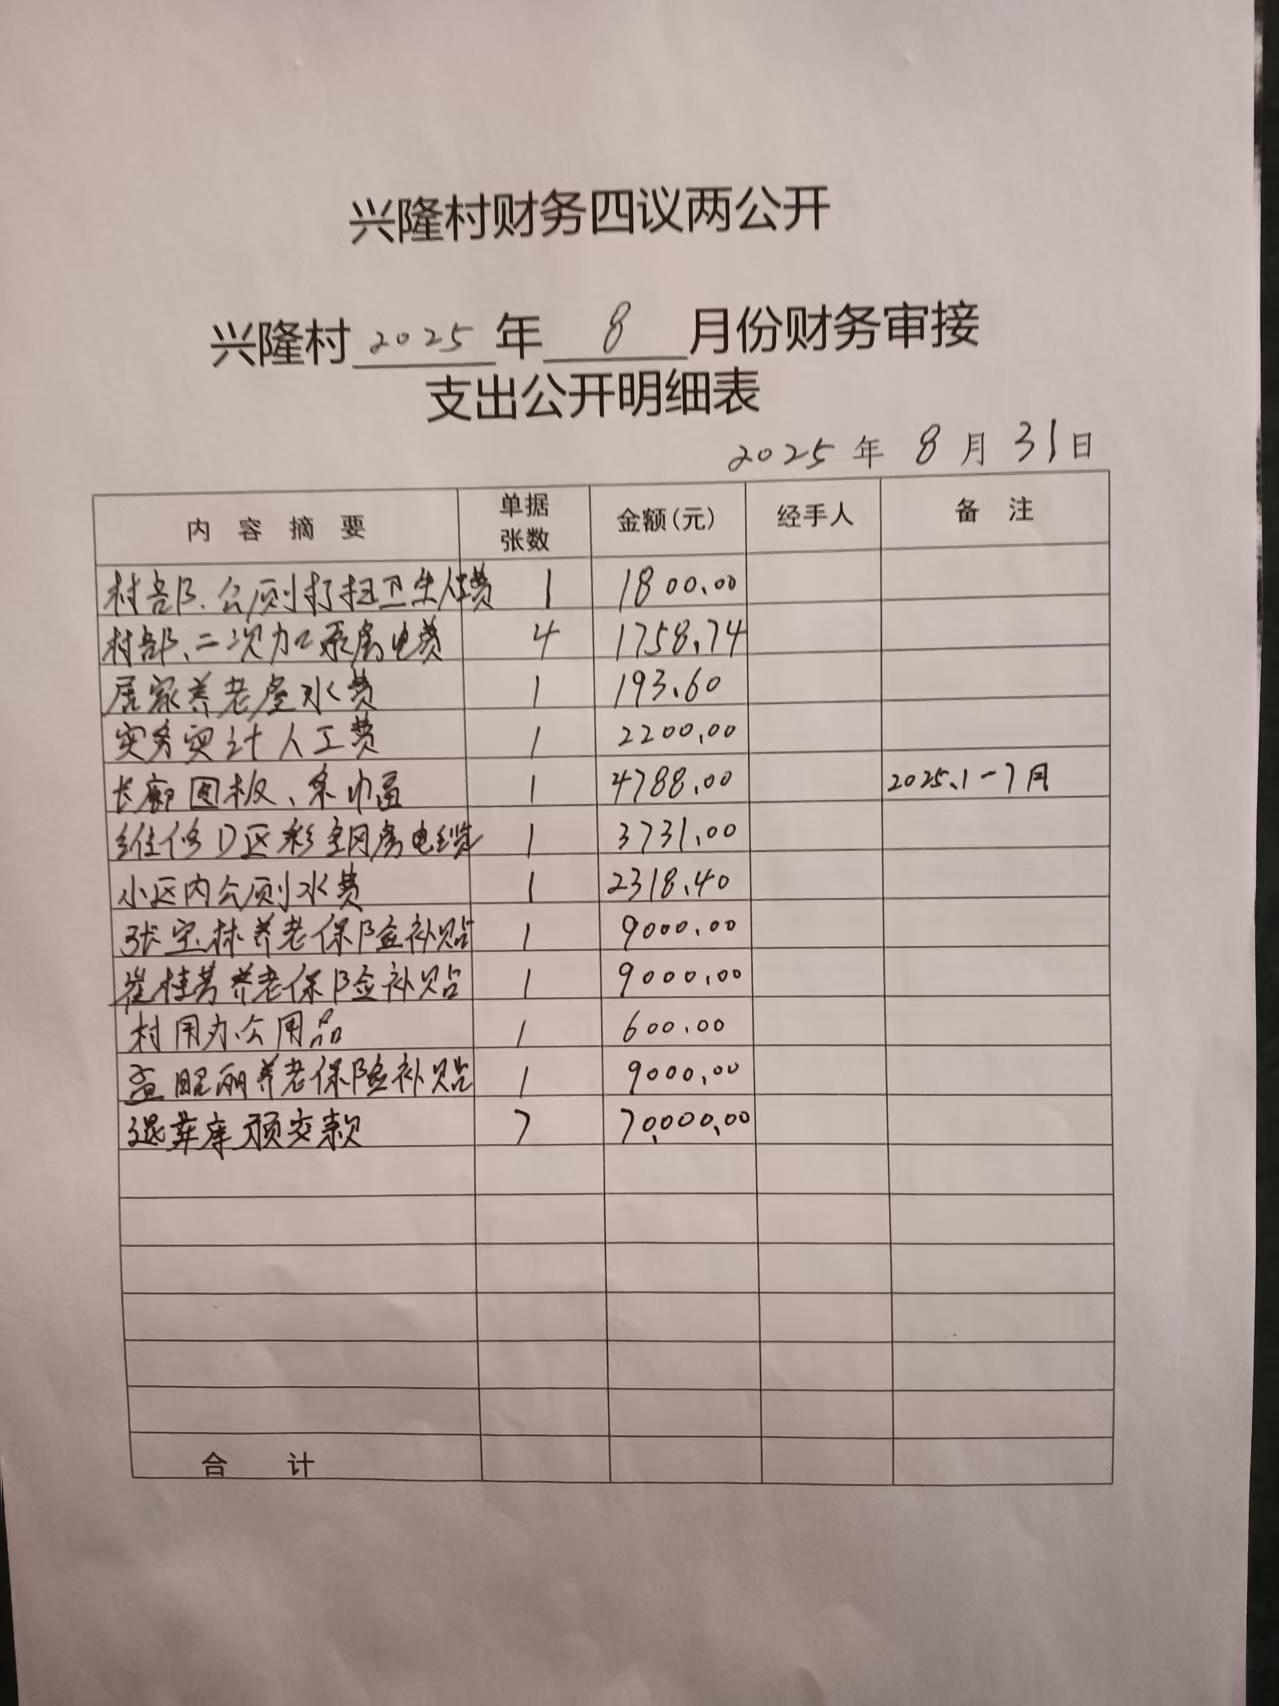 兴隆村财务四议两公开
兴隆村 2025 年 8 月份财务审接
支出公开明细表
2025 年 8 月 31 日
内容摘要 单据张数 金额(元) 经手人 备注
村部、公厕打扫卫生人工费 1 1800.00
村部、二次加压泵房电费 4 1758.74
居家养老屋水费 1 193.60
实务审计人工费 1 2200.00
长廊图板、条巾画 1 4788.00 2025.1-7月
维修D区彩钢房电缆 1 3731.00
小区内公厕水费 1 2318.40
张宝林养老保险补贴 1 9000.00
崔桂芳养老保险补贴 1 9000.00
村用办公用品 1 600.00
孟昭丽养老保险补贴 1 9000.00
退车库预交款 7 70,000.00
合计